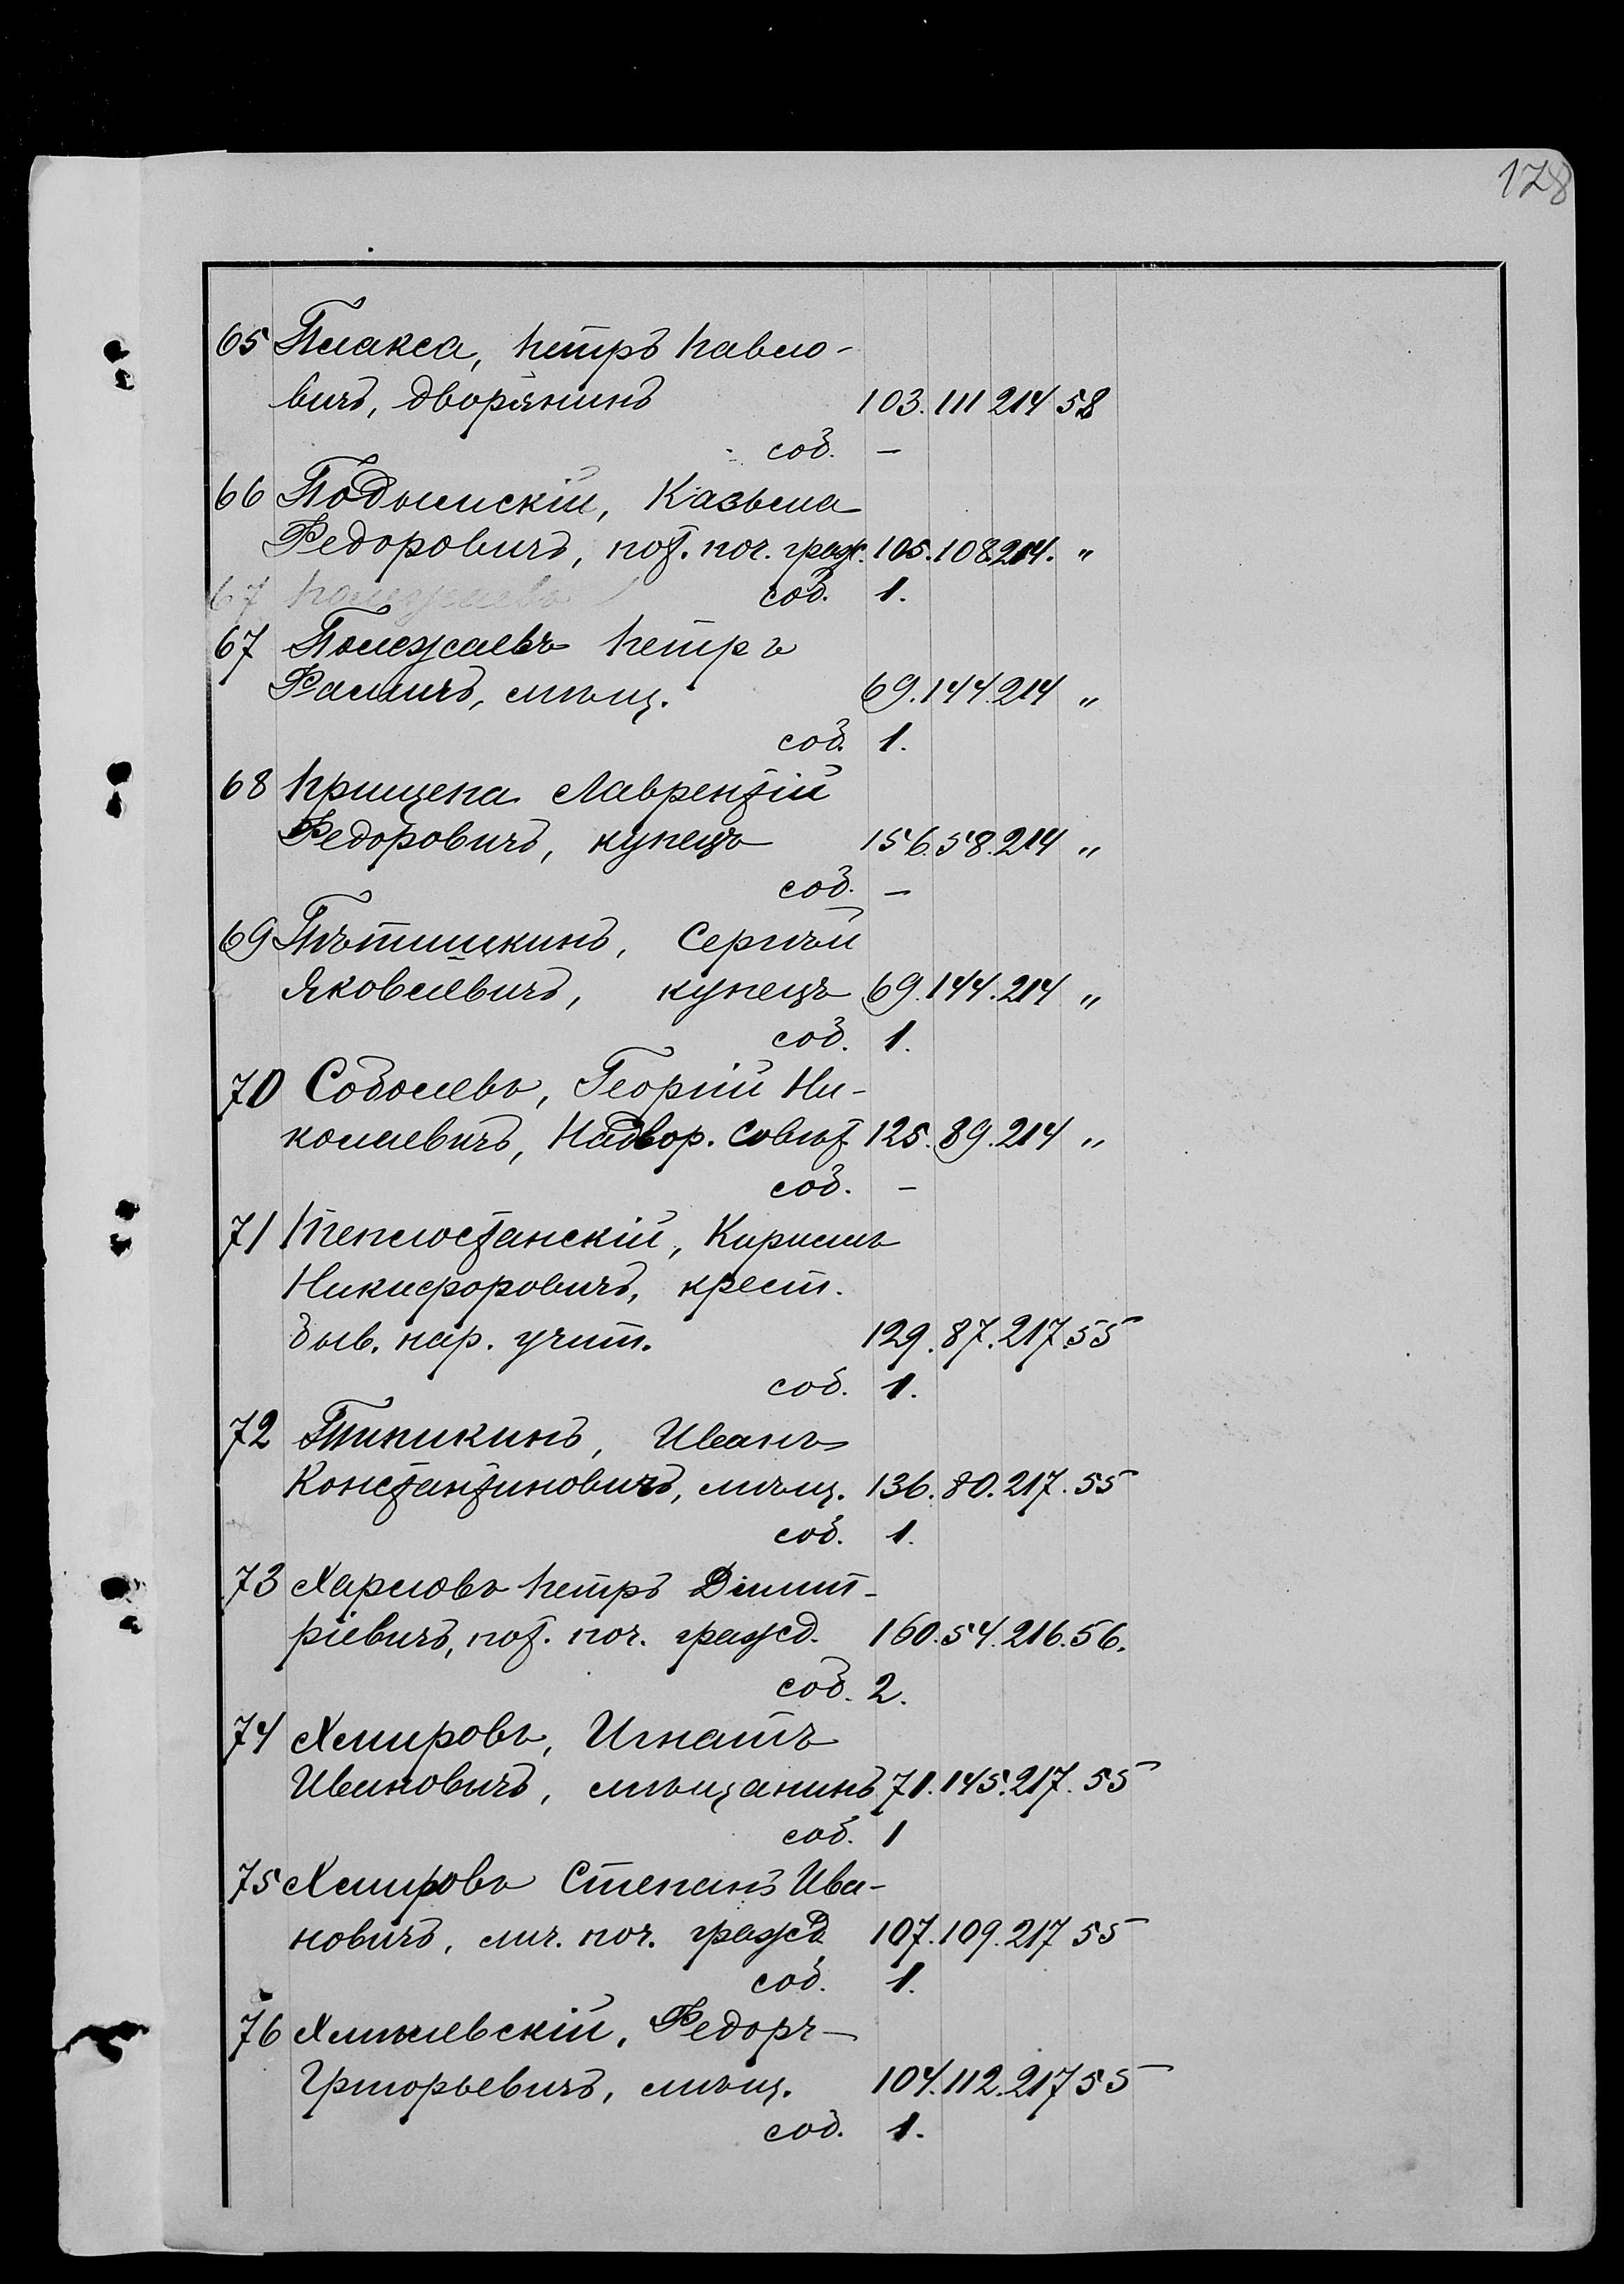 178
65 Плакса, Петръ Павло-
вичъ, дворянинъ 103. 111 214 58
соб. –
66 Подымскій, Казьма
Федоровичъ, пот. поч. гражд. 105. 108. 214. "
67 Полежаевъ соб. 1.
67 Полежаевъ Петръ
Фалличъ, мѣщ. 69. 144. 214 "
соб. 1.
68 Прищепа Лаврентій
Федоровичъ, купецъ 156. 58. 214 "
соб. –
69 Пѣтишкинъ, Сергѣй
Яковлевичъ, купецъ 69. 144. 214 "
соб. 1.
70 Соболевъ, Георгій Ни-
колаевичъ, Надвор. Совѣт. 125. 89. 214 "
соб. –
71 Теплостанскій, Кириллъ
Никифоровичъ, крест.
быв. нар. учит. 129. 87. 217. 55
соб. 1.
72 Типикинъ, Иванъ
Константиновичъ, мѣщ. 136. 80. 217. 55
соб. 1.
73 Харловъ Петръ Димит-
ріевичъ, пот. поч. гражд. 160. 54. 216. 56.
соб. 2.
74 Хмыровъ, Игнатъ
Ивановичъ, мѣщанинъ 71. 145. 217. 55
соб. 1
75 Хмыровъ Степанъ Ива-
новичъ, лич. поч. гражд. 107. 109. 217 55
соб. 1.
76 Хмѣлевскій, Федоръ
Григорьевичъ, мѣщ. 104. 112. 217 55
соб. 1.